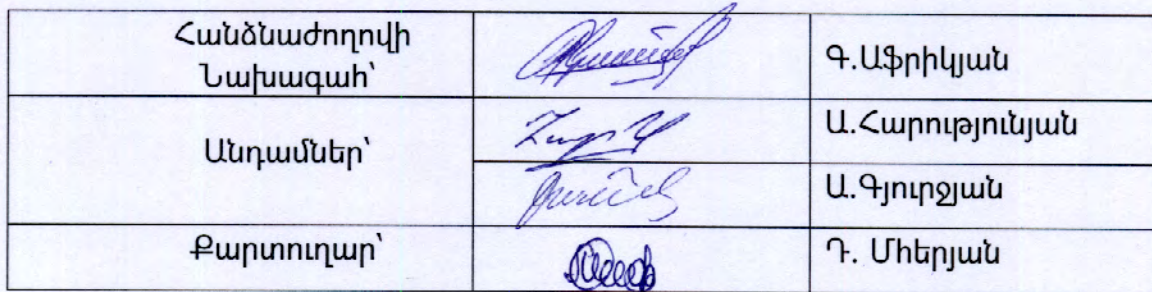 Հանձնաժողովի
Նախագահ՝
Գ.Աֆրիկյան
Անդամներ՝
Ա.Հարությունյան
Ա.Գյուրջյան
Քարտուղար՝
Դ. Մհերյան